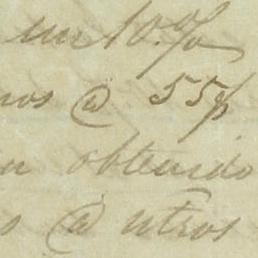 un 10.%
nos @ 55$
n obtenido
o @ utros